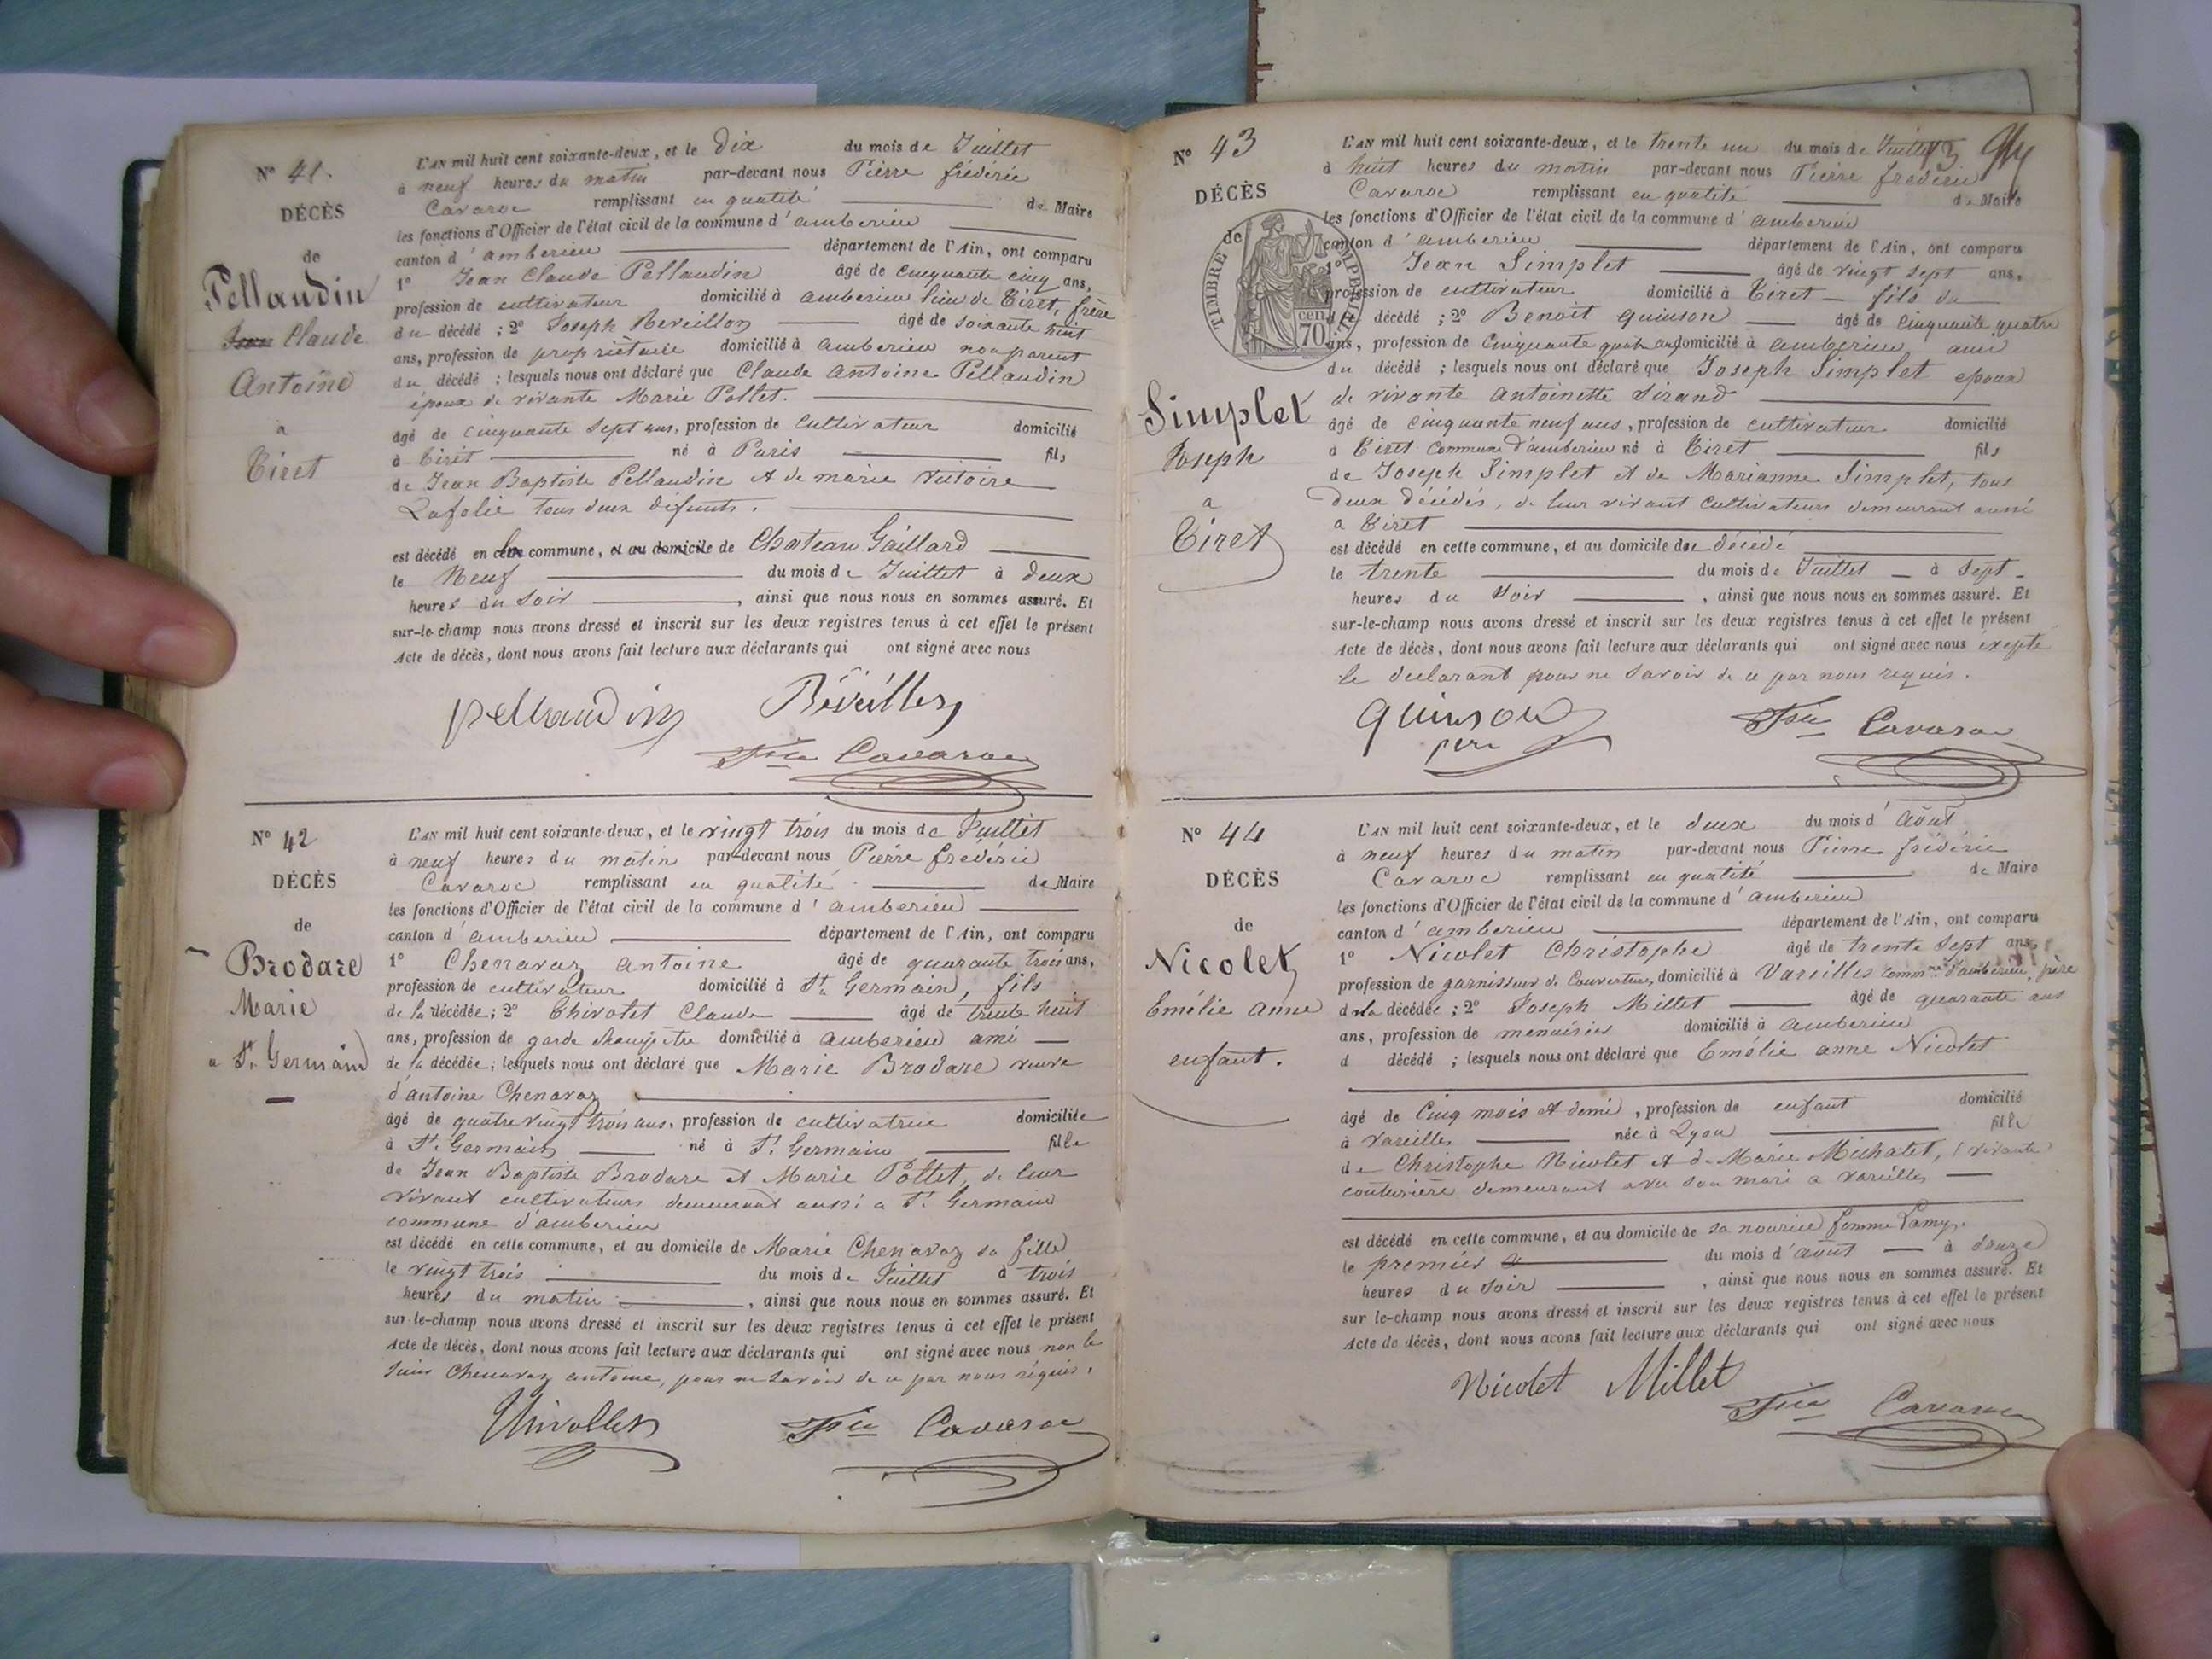 N° 41.
DÉCÈS
de
Pellaudin
Jean Claude
Antoine
a
Tiret
L'AN mil huit cent soixante-deux, et le dix du mois de Juillet
à neuf heures du matin par-devant nous Pierre fréderic
Cavaroc remplissant en qualité de Maire
les fonctions d'Officier de l'état civil de la commune d'amberieu
canton d'amberieu département de l'Ain, ont comparu
1° Jean Claude Pellaudin âgé de cinquante cinq ans,
profession de cultivateur domicilié à amberieu lieu de Tiret, frère
du décédé ; 2° Joseph Reveillon âgé de soixante huit
ans, profession de propriétaire domicilié à amberieu non parent
du décédé ; lesquels nous ont déclaré que Claude Antoine Pellaudin
époux de vivante Marie Pottet.
âgé de cinquante sept ans, profession de cultivateur domicilié
à Tiret né à Paris fils
de Jean Baptiste Pellaudin et de marie Victoire
Lafolie tous deux défunts.
est décédé en la commune, et au domicile de Chateau Gaillard
le Neuf du mois de Juillet à deux
heures du soir , ainsi que nous nous en sommes assuré. Et
sur-le-champ nous avons dressé et inscrit sur les deux registres tenus à cet effet le présent
Acte de décès, dont nous avons fait lecture aux déclarants qui ont signé avec nous
pellaudin Réveillon
Fric Cavaroc
N° 42
DÉCÈS
de
Brodare
Marie
a St Germain
L'AN mil huit cent soixante-deux, et le vingt trois du mois de Juillet
à neuf heures du matin par-devant nous Pierre fredéric
Cavaroc remplissant en qualité de Maire
les fonctions d'Officier de l'état civil de la commune d'amberieu
canton d'amberieu département de l'Ain, ont comparu
1° Chenavaz antoine âgé de quarante trois ans,
profession de cultivateur domicilié à St Germain, fils
de la décédée ; 2° Thivolet Claude âgé de trente huit
ans, profession de garde champêtre domicilié à amberieu ami
de la décédée ; lesquels nous ont déclaré que Marie Brodare veuve
d'antoine Chenavaz
âgé de quatre vingt trois ans, profession de cultivatrice domiciliée
à St Germain né à St Germain fille
de Jean Baptiste Brodare et Marie Pottet, de leur
vivant cultivateurs demeurant aussi a St Germain
commune d'amberieu
est décédé en cette commune, et au domicile de Marie Chenavaz sa fille
le vingt trois du mois de Juillet à trois
heures du matin , ainsi que nous nous en sommes assuré. Et
sur-le-champ nous avons dressé et inscrit sur les deux registres tenus à cet effet le présent
Acte de décès, dont nous avons fait lecture aux déclarants qui ont signé avec nous non le
sieur Chenavaz antoine, pour ne savoir de ce par nous réquis.
Thivollet Fric Cavaroc
N° 43
DÉCÈS
de
TIMBRE IMPÉRIAL
70 cen
Simplet
Joseph
a
Tiret
L'AN mil huit cent soixante-deux, et le trente un du mois de Juillet
à huit heures du matin par-devant nous Pierre fréderic
Cavaroc remplissant en qualité de Maire
les fonctions d'Officier de l'état civil de la commune d'amberieu
canton d'amberieu département de l'Ain, ont comparu
1° Jean Simplet âgé de vingt sept ans,
profession de cultivateur domicilié à Tiret fils du
décédé ; 2° Benoit quinson âgé de cinquante quatre
ans, profession de cinquante quatre ans domicilié à amberieu ami
du décédé ; lesquels nous ont déclaré que Joseph Simplet epoux
de vivante antoinette Sirand
âgé de cinquante neuf ans, profession de cultivateur domicilié
à Tiret commune d'amberieu né à Tiret fils
de Joseph Simplet et de Marianne Simplet, tous
deux décédés, de leur vivant cultivateurs demeurant aussi
a Tiret
est décédé en cette commune, et au domicile du décédé
le trente du mois de Juillet à sept
heures du soir , ainsi que nous nous en sommes assuré. Et
sur-le-champ nous avons dressé et inscrit sur les deux registres tenus à cet effet le présent
Acte de décès, dont nous avons fait lecture aux déclarants qui ont signé avec nous éxepté
le declarant pour ne savoir de ce par nous requis.
quinson
père
Fric Cavaroc
N° 44
DÉCÈS
de
Nicolet
Emélie anne
enfant.
L'AN mil huit cent soixante-deux, et le deux du mois d'août
à neuf heures du matin par-devant nous Pierre fréderic
Cavaroc remplissant en qualité de Maire
les fonctions d'Officier de l'état civil de la commune d'amberieu
canton d'amberieu département de l'Ain, ont comparu
1° Nicolet Christophe âgé de trente sept ans,
profession de garnisseur de Couvertures, domicilié à Vareilles commne d'amberieu, père
de la décédée ; 2° Joseph Millet âgé de quarante ans
ans, profession de menuisier domicilié à amberieu
d décédé ; lesquels nous ont déclaré que Emélie anne Nicolet
âgé de cinq mois et demi, profession de enfant domicilié
à vareilles née à Lyon fille
de Christophe Nicolet et de Marie Michalet, (vivante
couturière demeurant avec son mari a vareilles
est décédé en cette commune, et au domicile de sa nourice femme Lamy.
le premier du mois d'août à douze
heures du soir , ainsi que nous nous en sommes assuré. Et
sur-le-champ nous avons dressé et inscrit sur les deux registres tenus à cet effet le présent
Acte de décès, dont nous avons fait lecture aux déclarants qui ont signé avec nous
Nicolet Millet
Fric Cavaroc